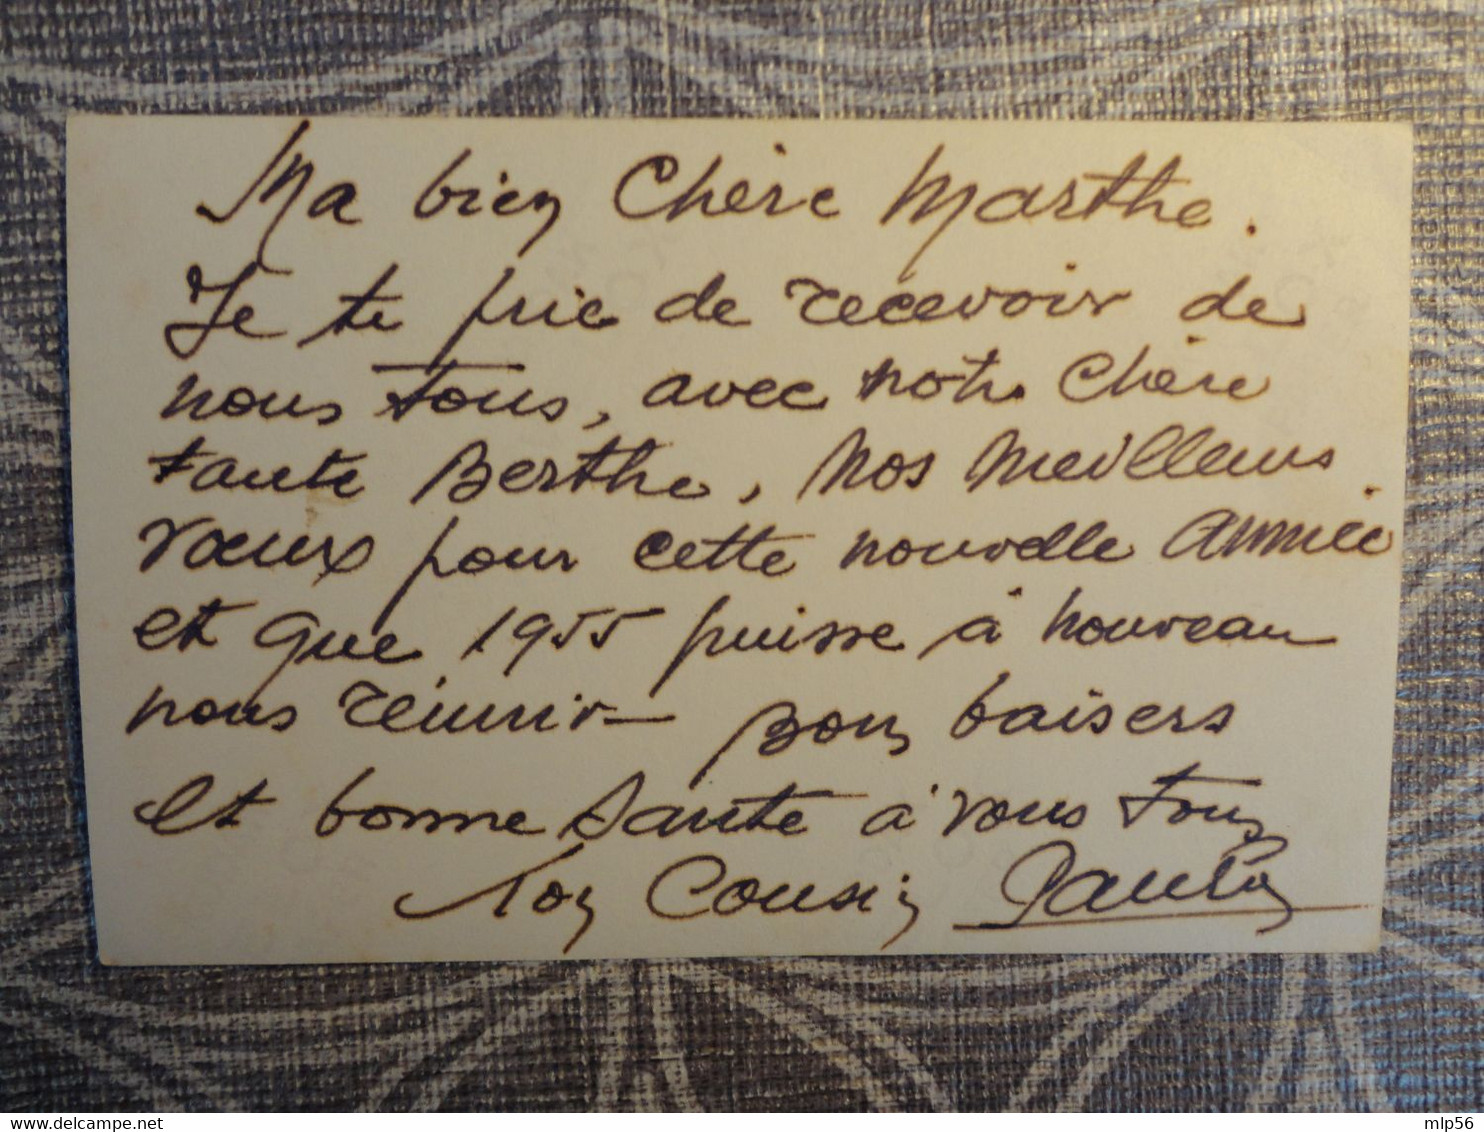 Ma bien Chère Marthe.
Je te prie de recevoir de
nous tous, avec notre Chère
tante Berthe, Nos Meilleurs
vœux pour cette nouvelle Année
et que 1955 puisse à nouveau
nous réunir — Bons baisers
et bonne Santé à vous tous
Ton Cousin
delcampe.net
mlp56